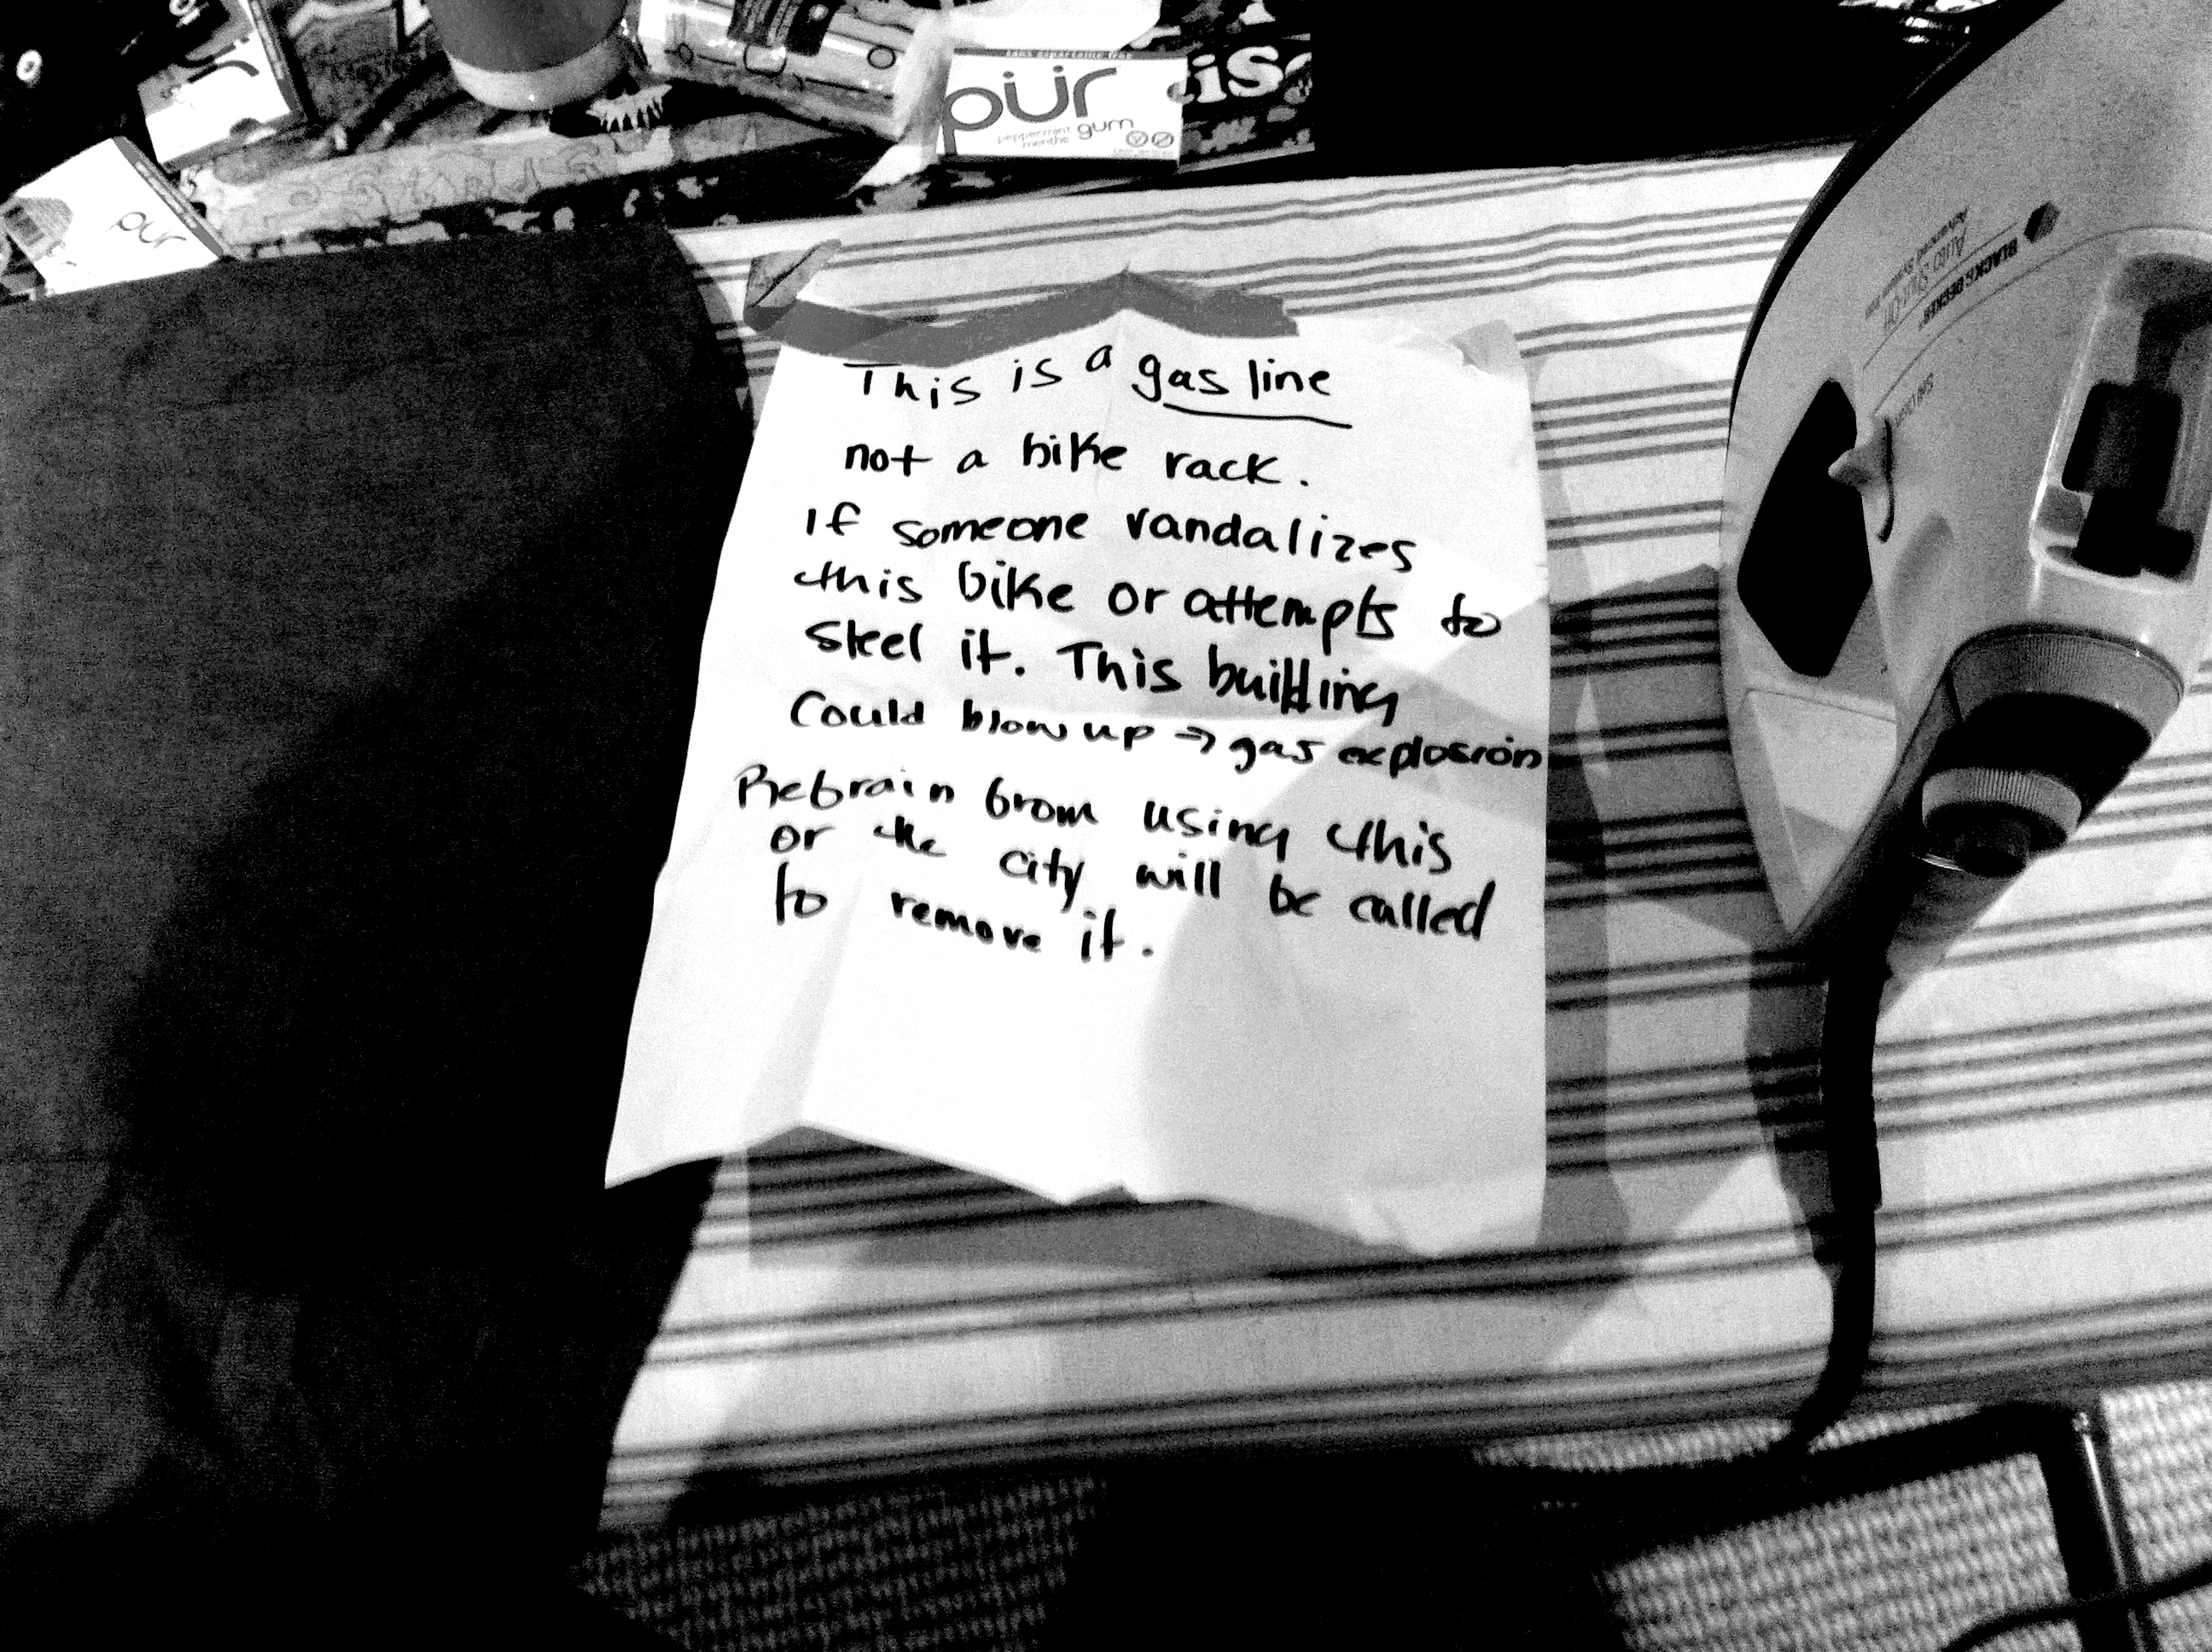 pür
gum
peppermint
menthe
pür
BLACK & DECKER
Auto Shut-Off
This is a gas line
not a bike rack.
If someone vandalizes
this bike or attempts to
steel it. This building
Could blow up → gas explosion
Refrain from using this
or the city will be called
to remove it.